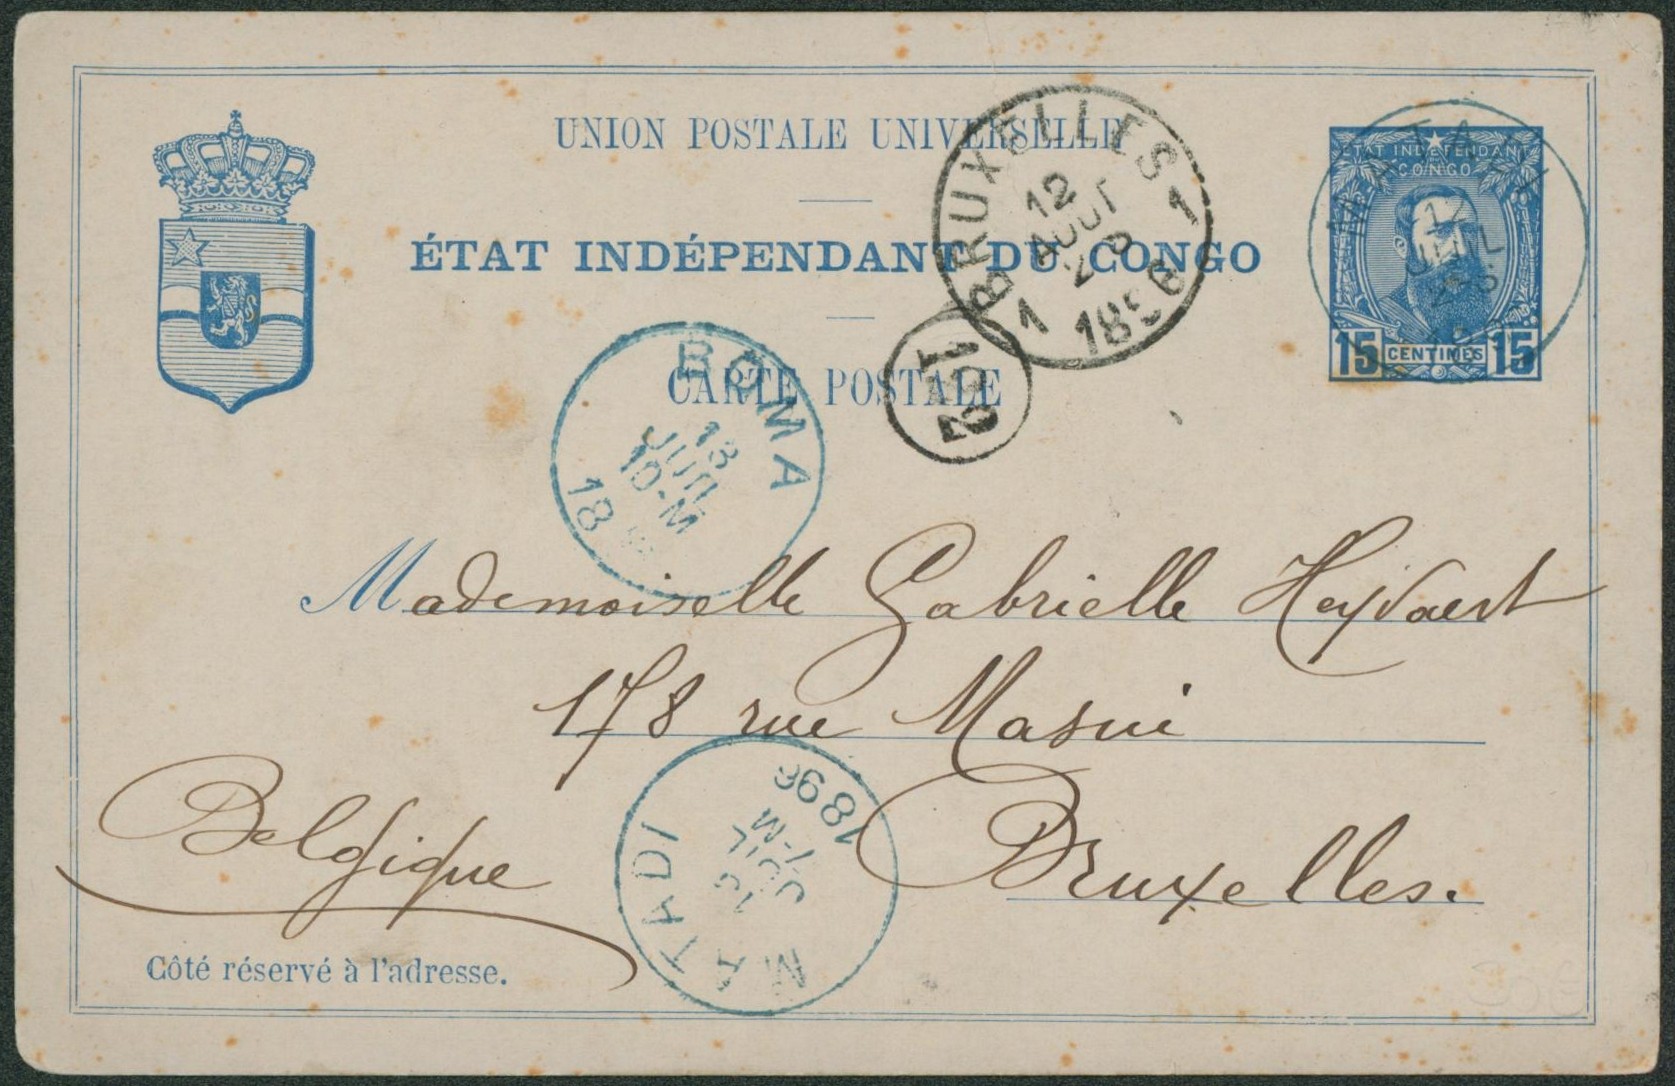 UNION POSTALE UNIVERSELLE
ÉTAT INDÉPENDANT DU CONGO
CARTE POSTALE
ÉTAT INDÉPENDANT
CONGO
15 CENTIMES 15
MATADI
12
JUIL
BRUXELLES
12
AOUT
1 1896 1
BOMA
13
JUIL
10-M
18
Mademoiselle Gabrielle Heyvaert
178 rue Masui
Bruxelles.
Belgique
MATADI
JUIL
1896
Côté réservé à l'adresse.